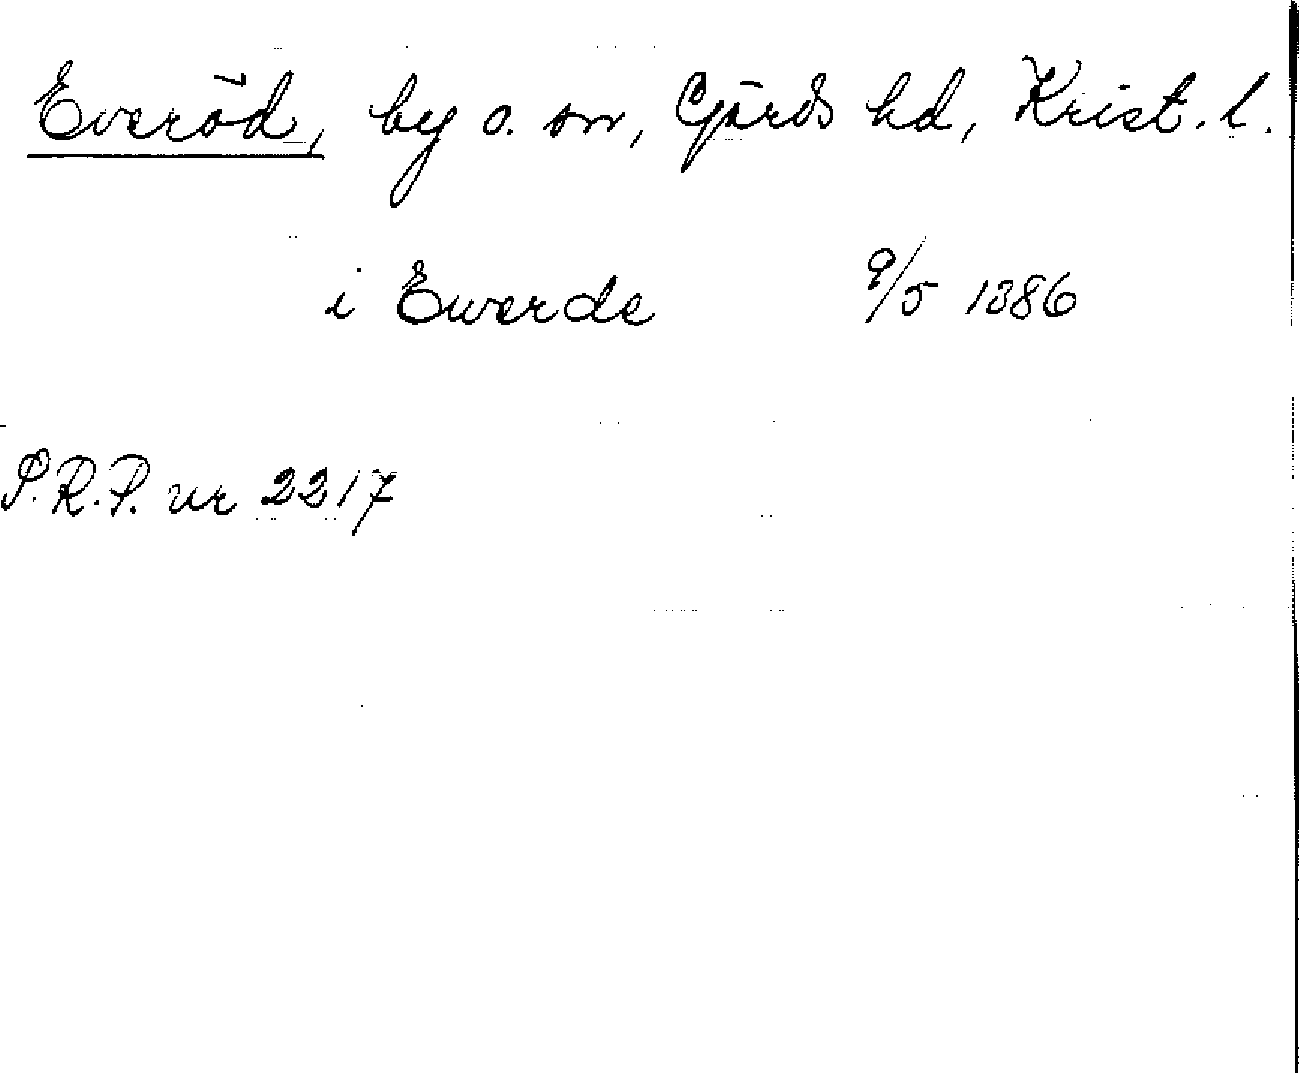 Everöd, by o. sn, Gärds hd, Krist. l.
i Ewerde 9/5 1386
P.R.P. nr 2217